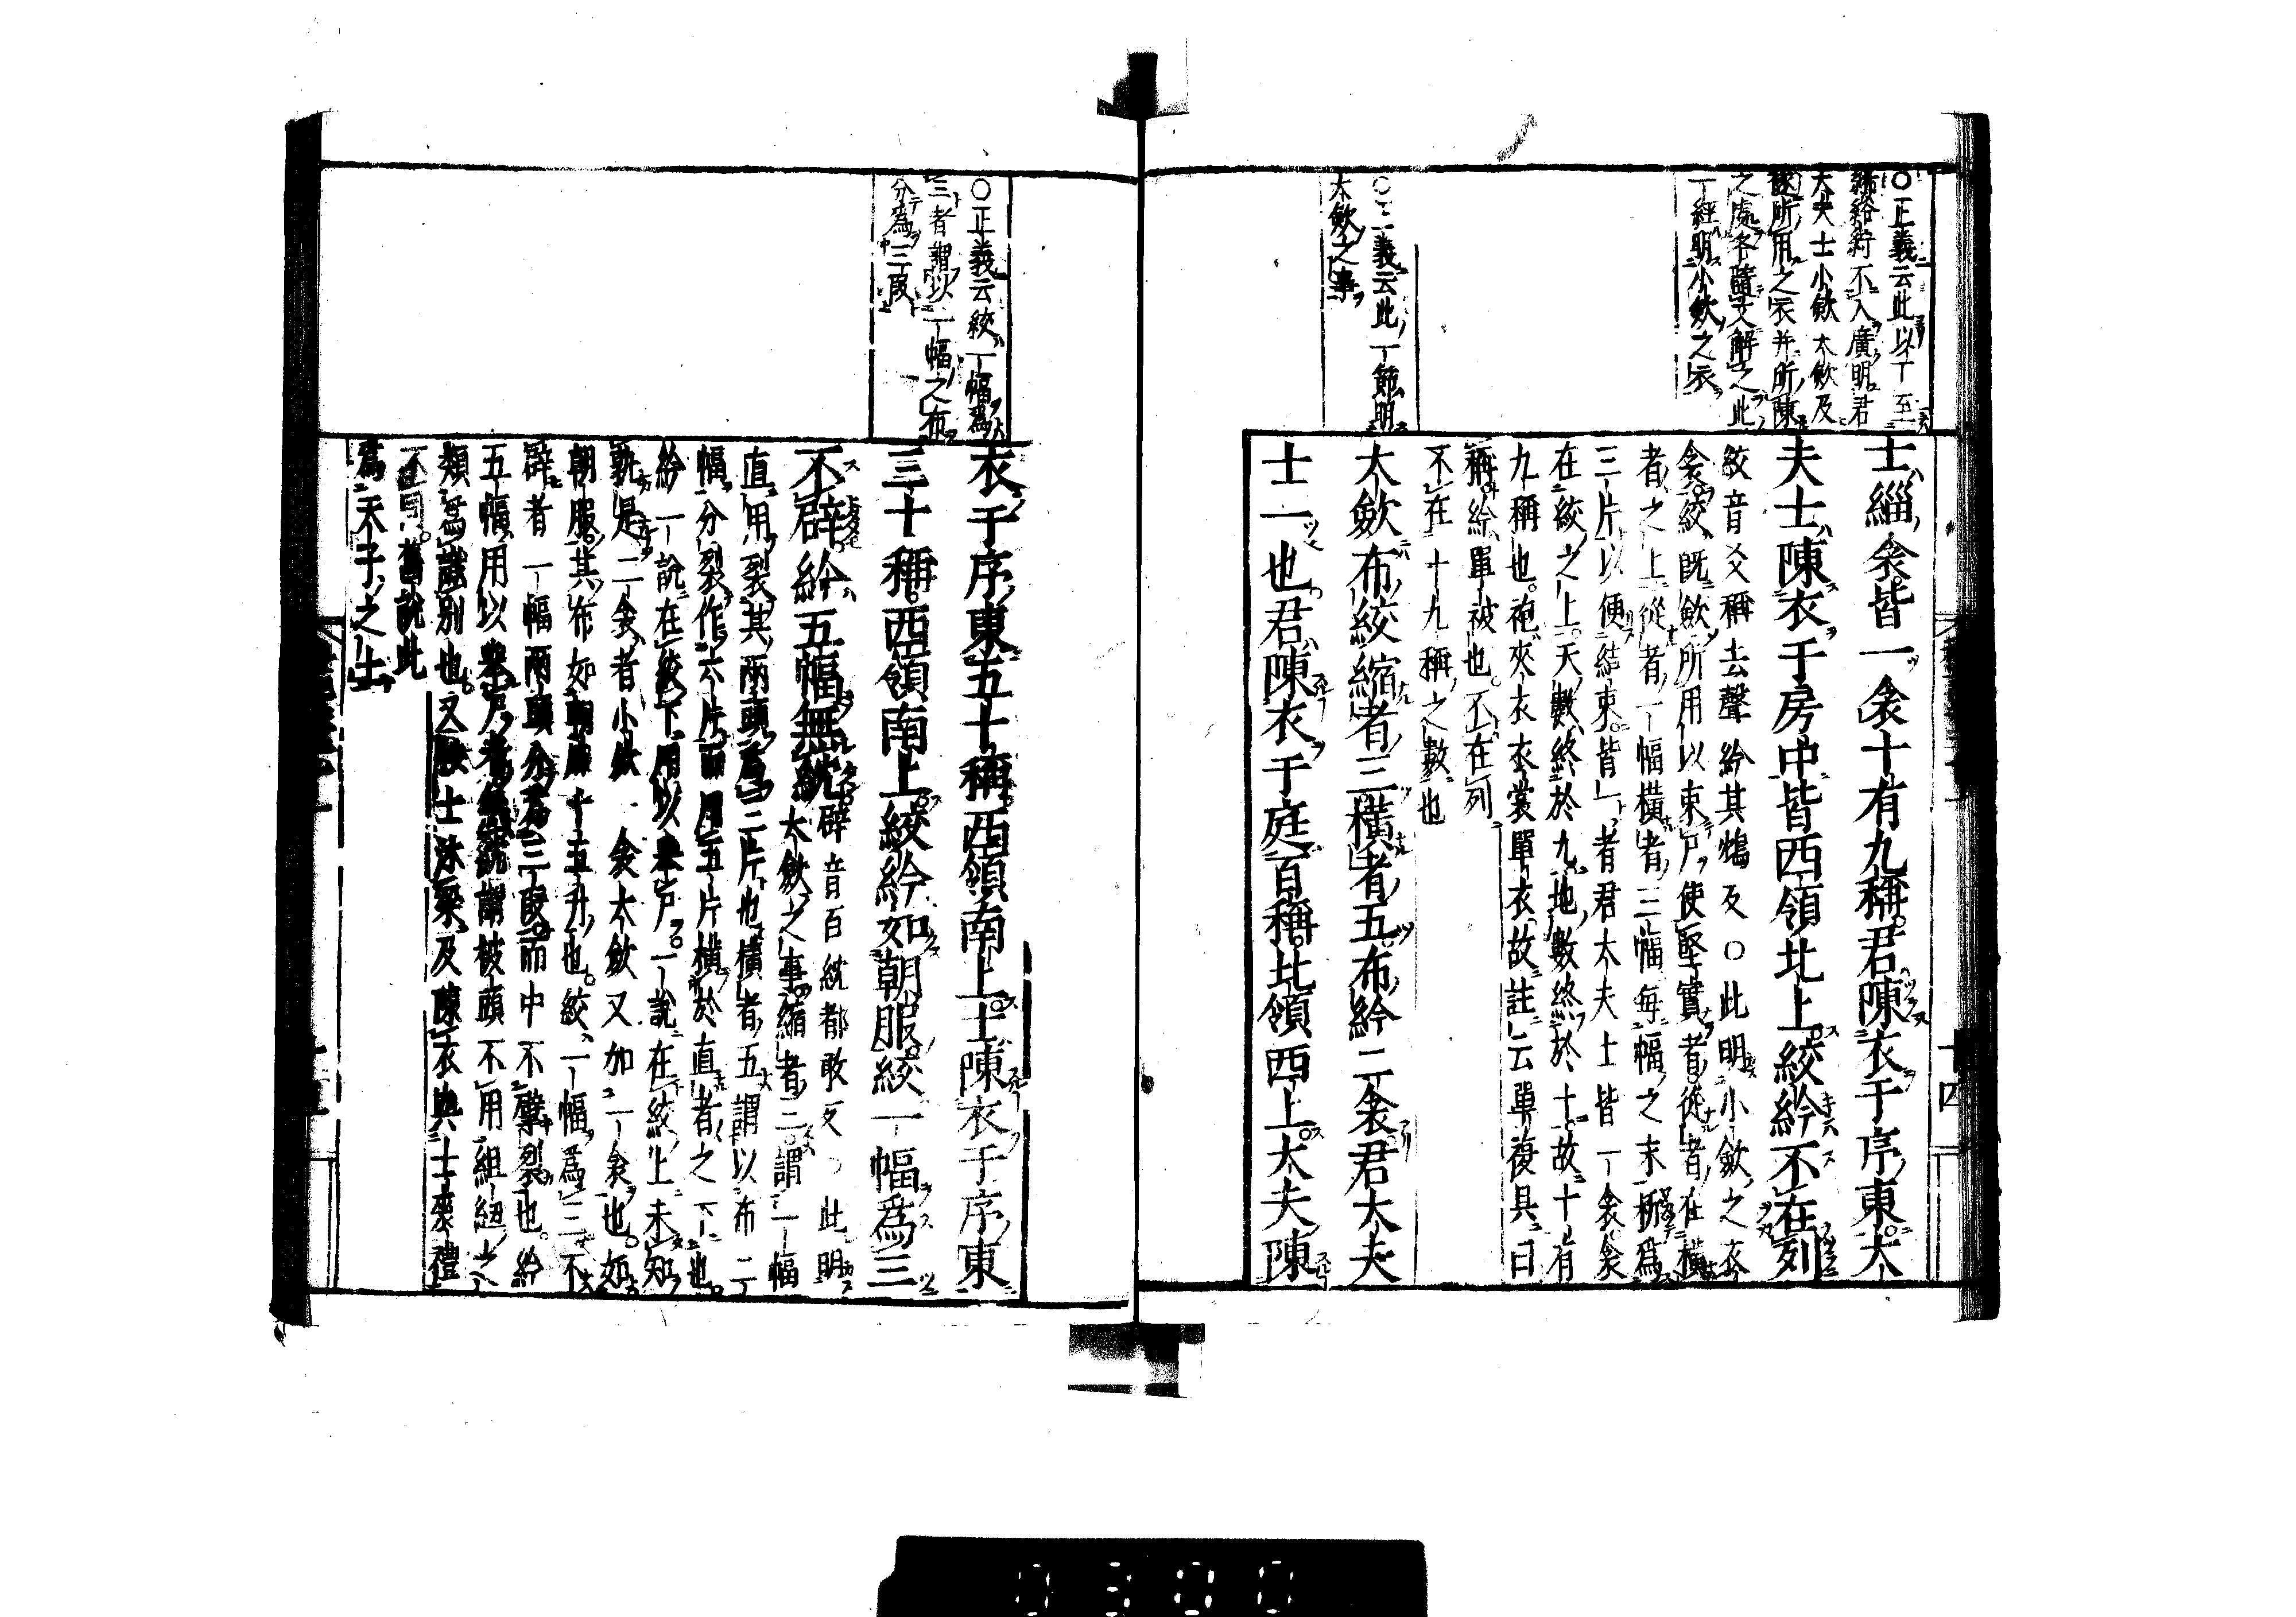 〇正義云此以下至
縮給紟不入廣明君
大夫士小斂大斂及
襚所用之衣并所陳
之處各隨文解之此
一經明小斂之衣
士緇衾皆一衾十有九稱君陳衣于序東大
夫士陳衣于房中皆西領北上絞紟不在列
絞音爻稱去聲紟其鴆反〇此明小斂之衣
衾絞既斂所用以束尸使堅實者從者在橫
者之上從者一幅橫者三幅每幅之末析爲
三片以便結束皆一者君大夫士皆一衾衾
在絞之上天數終於九地數終於十故十有
九稱也袍夾衣衣裳單衣故註云單複具曰
稱紟單被也不在列
不在十九稱之數也
〇正義云此一節明
大斂之事
大斂布絞縮者三橫者五布紟二衾君大夫
士一也君陳衣于庭百稱北領西上大夫陳
〇正義云絞一幅爲
三者謂以一幅之布
分爲三段
衣于序東五十稱西領南上士陳衣于序東
三十稱西領南上絞紟如朝服絞一幅爲三
不辟紟五幅無紞辟音百紞都敢反〇此明
大斂之事縮者三謂一幅
直用裂其兩頭爲三片也橫者五謂以布二
幅分裂作六片而用五片橫於直者之下也
紟一說在絞下用以舉尸一說在絞上未知
孰是二衾者小斂一衾大斂又加一衾也如
朝服其布如朝服十五升也絞一幅爲三不
辟者一幅兩頭分爲三段而中不擘裂也紟
五幅用以舉尸者無紞謂被頭不用組紐之
類爲識別也又按士沐粱及陳衣與士喪禮
不同舊說此
爲天子之士